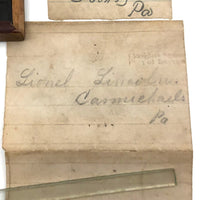 Pa
Lionel Lincoln
Carmichaels
Pa